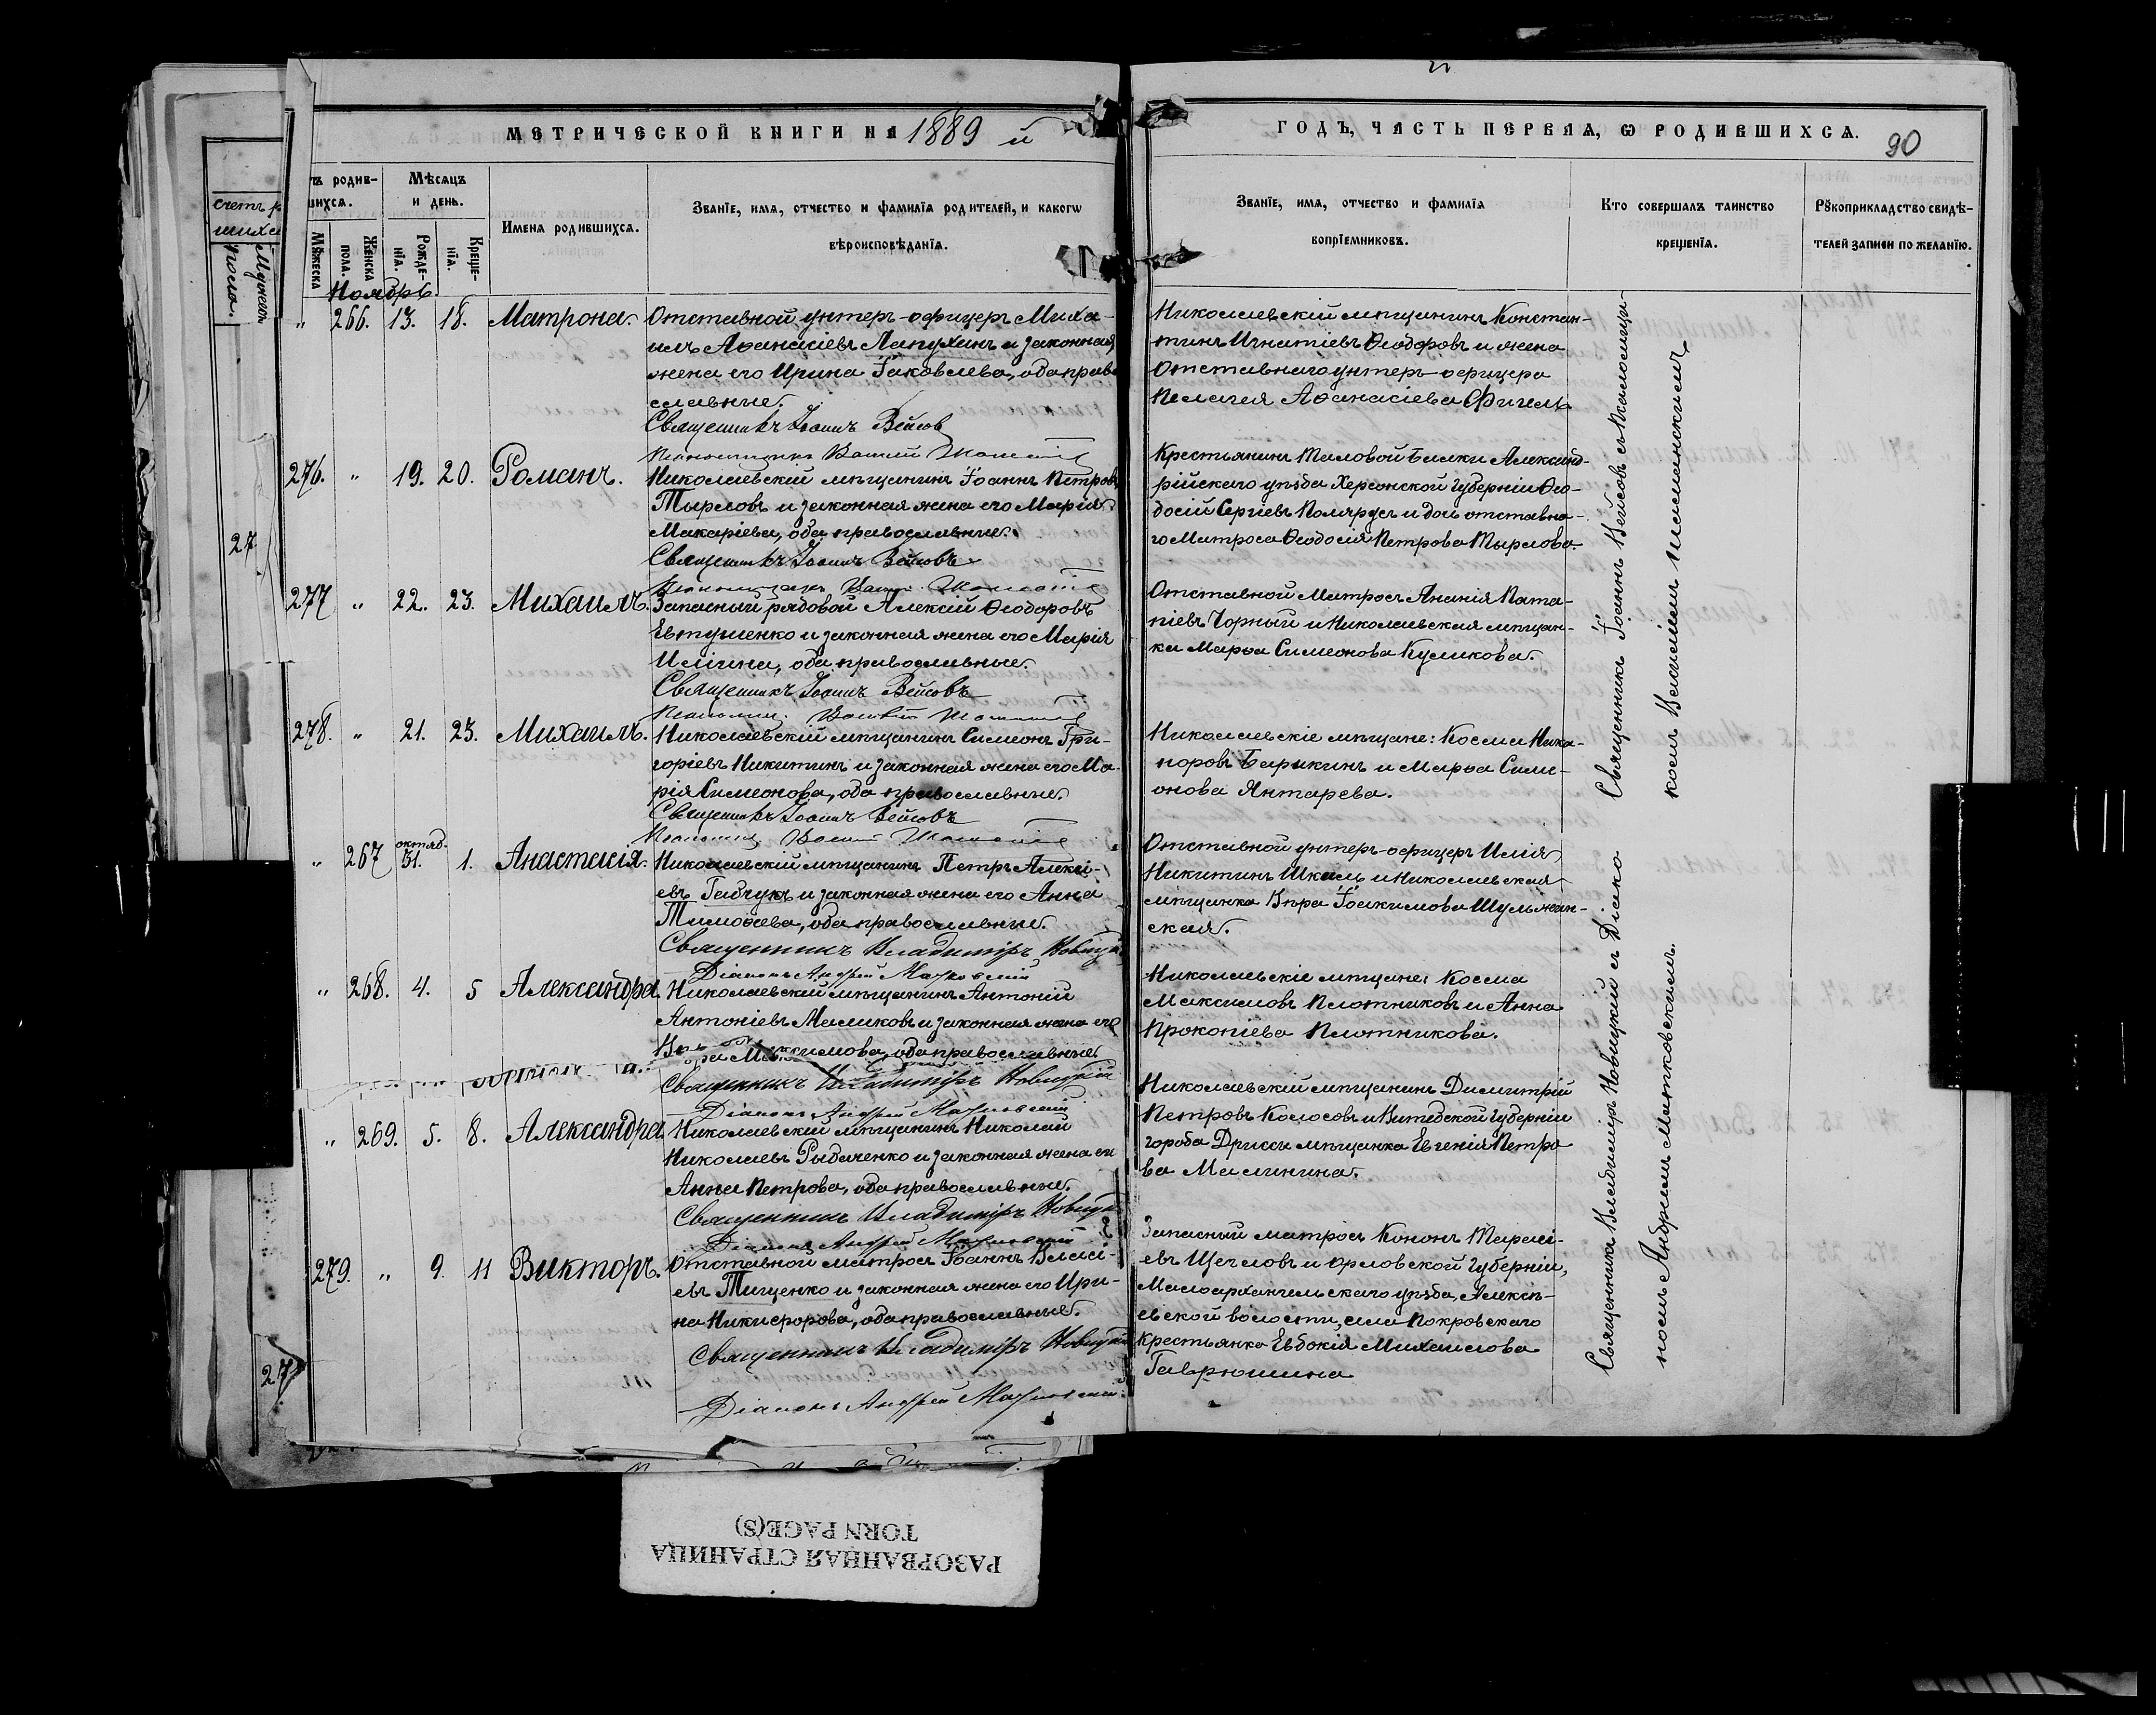 МЕТРИЧЕСКОЙ КНИГИ НА 1889 й
ГОДЪ, ЧАСТЬ ПЕРВАЯ, Ѡ РОДИВШИХСЯ.
90
родив-
шихся.
Мѣсяцъ
и день.
Имена родившихся.
Званіе, имя, отчество и фамилія родителей, и какогѡ
вѣроисповѣданія.
Мꙋжеска
пола.
Женска
Рожде-
нія.
Креще-
нія.
Званіе, имя, отчество и фамилія
вопріемниковъ.
Кто совершалъ таинство
крещенія.
Рꙋкоприкладство свидѣ-
телей записи по желанію.
Ноябрь
„ 266. 13. 18. Матрона.
Отставной унтеръ-офицеръ Миха-
илъ Аѳанасіевъ Лапухинъ и законная
жена его Ирина Іаковлева, оба право
славные.
Священникъ Іоаннъ Вейсовъ
Николаевскій мѣщанинъ Констан-
тинъ Игнатіевъ Ѳеодоровъ и жена
Отставнаго унтеръ-офицера
Пелагея Аѳанасіева Фигель
276. „ 19. 20. Романъ.
Николаевскій мѣщанинъ Іоаннъ Петровъ
Тырловъ и законная жена его Марія
Макаріева, оба православные.
Священникъ Іоаннъ Вейсовъ
Крестьянинъ Таловой Балки Александ-
рійскаго уѣзда Херсонской Губерніи Ѳео-
досій Сергіевъ Полярусъ и дочь отставна-
го Матроса Ѳеодосія Петрова Тырлова.
277 „ 22. 23. Михаилъ.
Запасный рядовой Алексій Ѳеодоровъ
Евтушенко и законная жена его Марія
Иліина, оба православные.
Священникъ Іоаннъ Вейсовъ
Отставной Матросъ Ананія Пата-
піевъ Чорный и Николаевская мѣщан-
ка Марѳа Симеонова Куликова.
278. „ 21. 23. Михаилъ.
Николаевскій мѣщанинъ Симеонъ Гри-
горіевъ Никитинъ и законная жена его Ма-
рія Симеонова, оба православные.
Священникъ Іоаннъ Вейсовъ
Николаевскіе мѣщане: Косма Ника-
норовъ Барыкинъ и Марѳа Симе-
онова Янтарева.
„ 267 октяб. 31. 1. Анастасія.
Николаевскій мѣщанинъ Петръ Алексі-
евъ Гайчукъ и законная жена его Анна
Тимоѳеева, оба православные.
Священникъ Владиміръ Новицкій
Діаконъ Андрей Матковскій
Отставной унтеръ-офицеръ Илія
Никитинъ Шкаль и Николаевская
мѣщанка Вѣра Іоакимова Шульжан-
ская.
„ 268. 4. 5 Александра
Николаевскій мѣщанинъ Антоній
Антоніевъ Маликовъ и законная жена его
Вѣра Максимова, оба православные.
Священникъ Владиміръ Новицкій
Діаконъ Андрей Матковскій
Николаевскіе мѣщане: Косма
Максимовъ Плотниковъ и Анна
Прокопіева Плотникова.
„ 269. 5. 8. Александра
Николаевскій мѣщанинъ Николай
Николаевъ Рыбаченко и законная жена его
Анна Петрова, оба православные.
Священникъ Владиміръ Новицкій
Діаконъ Андрей Матковскій
Николаевскій мѣщанинъ Димитрій
Петровъ Колосовъ и Витебской Губерніи
города Дриссы мѣщанка Евгенія Петро
ва Малинина.
279. „ 9. 11 Викторъ.
Отставной матросъ Іоаннъ Власі-
евъ Тищенко и законная жена его Ири-
на Никифорова, оба православные.
Священникъ Владиміръ Новицкій
Діаконъ Андрей Матковскій
Запасный матросъ Кононъ Тарасі-
евъ Щегловъ и Орловской Губерніи,
Малоархангельскаго уѣзда, Алексѣ-
евской волости, села Покровскаго
крестьянка Евдокія Михаилова
Гаврюшина
Священникъ Іоаннъ Вейсовъ съ Псаломщи-
комъ Василіемъ
Священникъ Владиміръ Новицкій съ Діако-
номъ Андреемъ Матковскимъ.
27
27
РАЗОРВАННАЯ СТРАНИЦА
TORN PAGE(S)